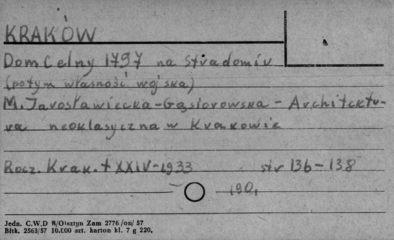 KRAKÓW
Dom Celny 1797 na Stradomiu
(potym własność wojska)
M. Jarosławiecka-Gąsiorowska - Architektu-
ra neoklasyczna w Krakowie
Rocz. Krak. t XXIV-1933 str 136-138
190,
Jedn. C.W.D R/Olsztyn Zam 2776/on/57
Bltk. 2563/57 10.000 szt. karton kl. 7 g 220,